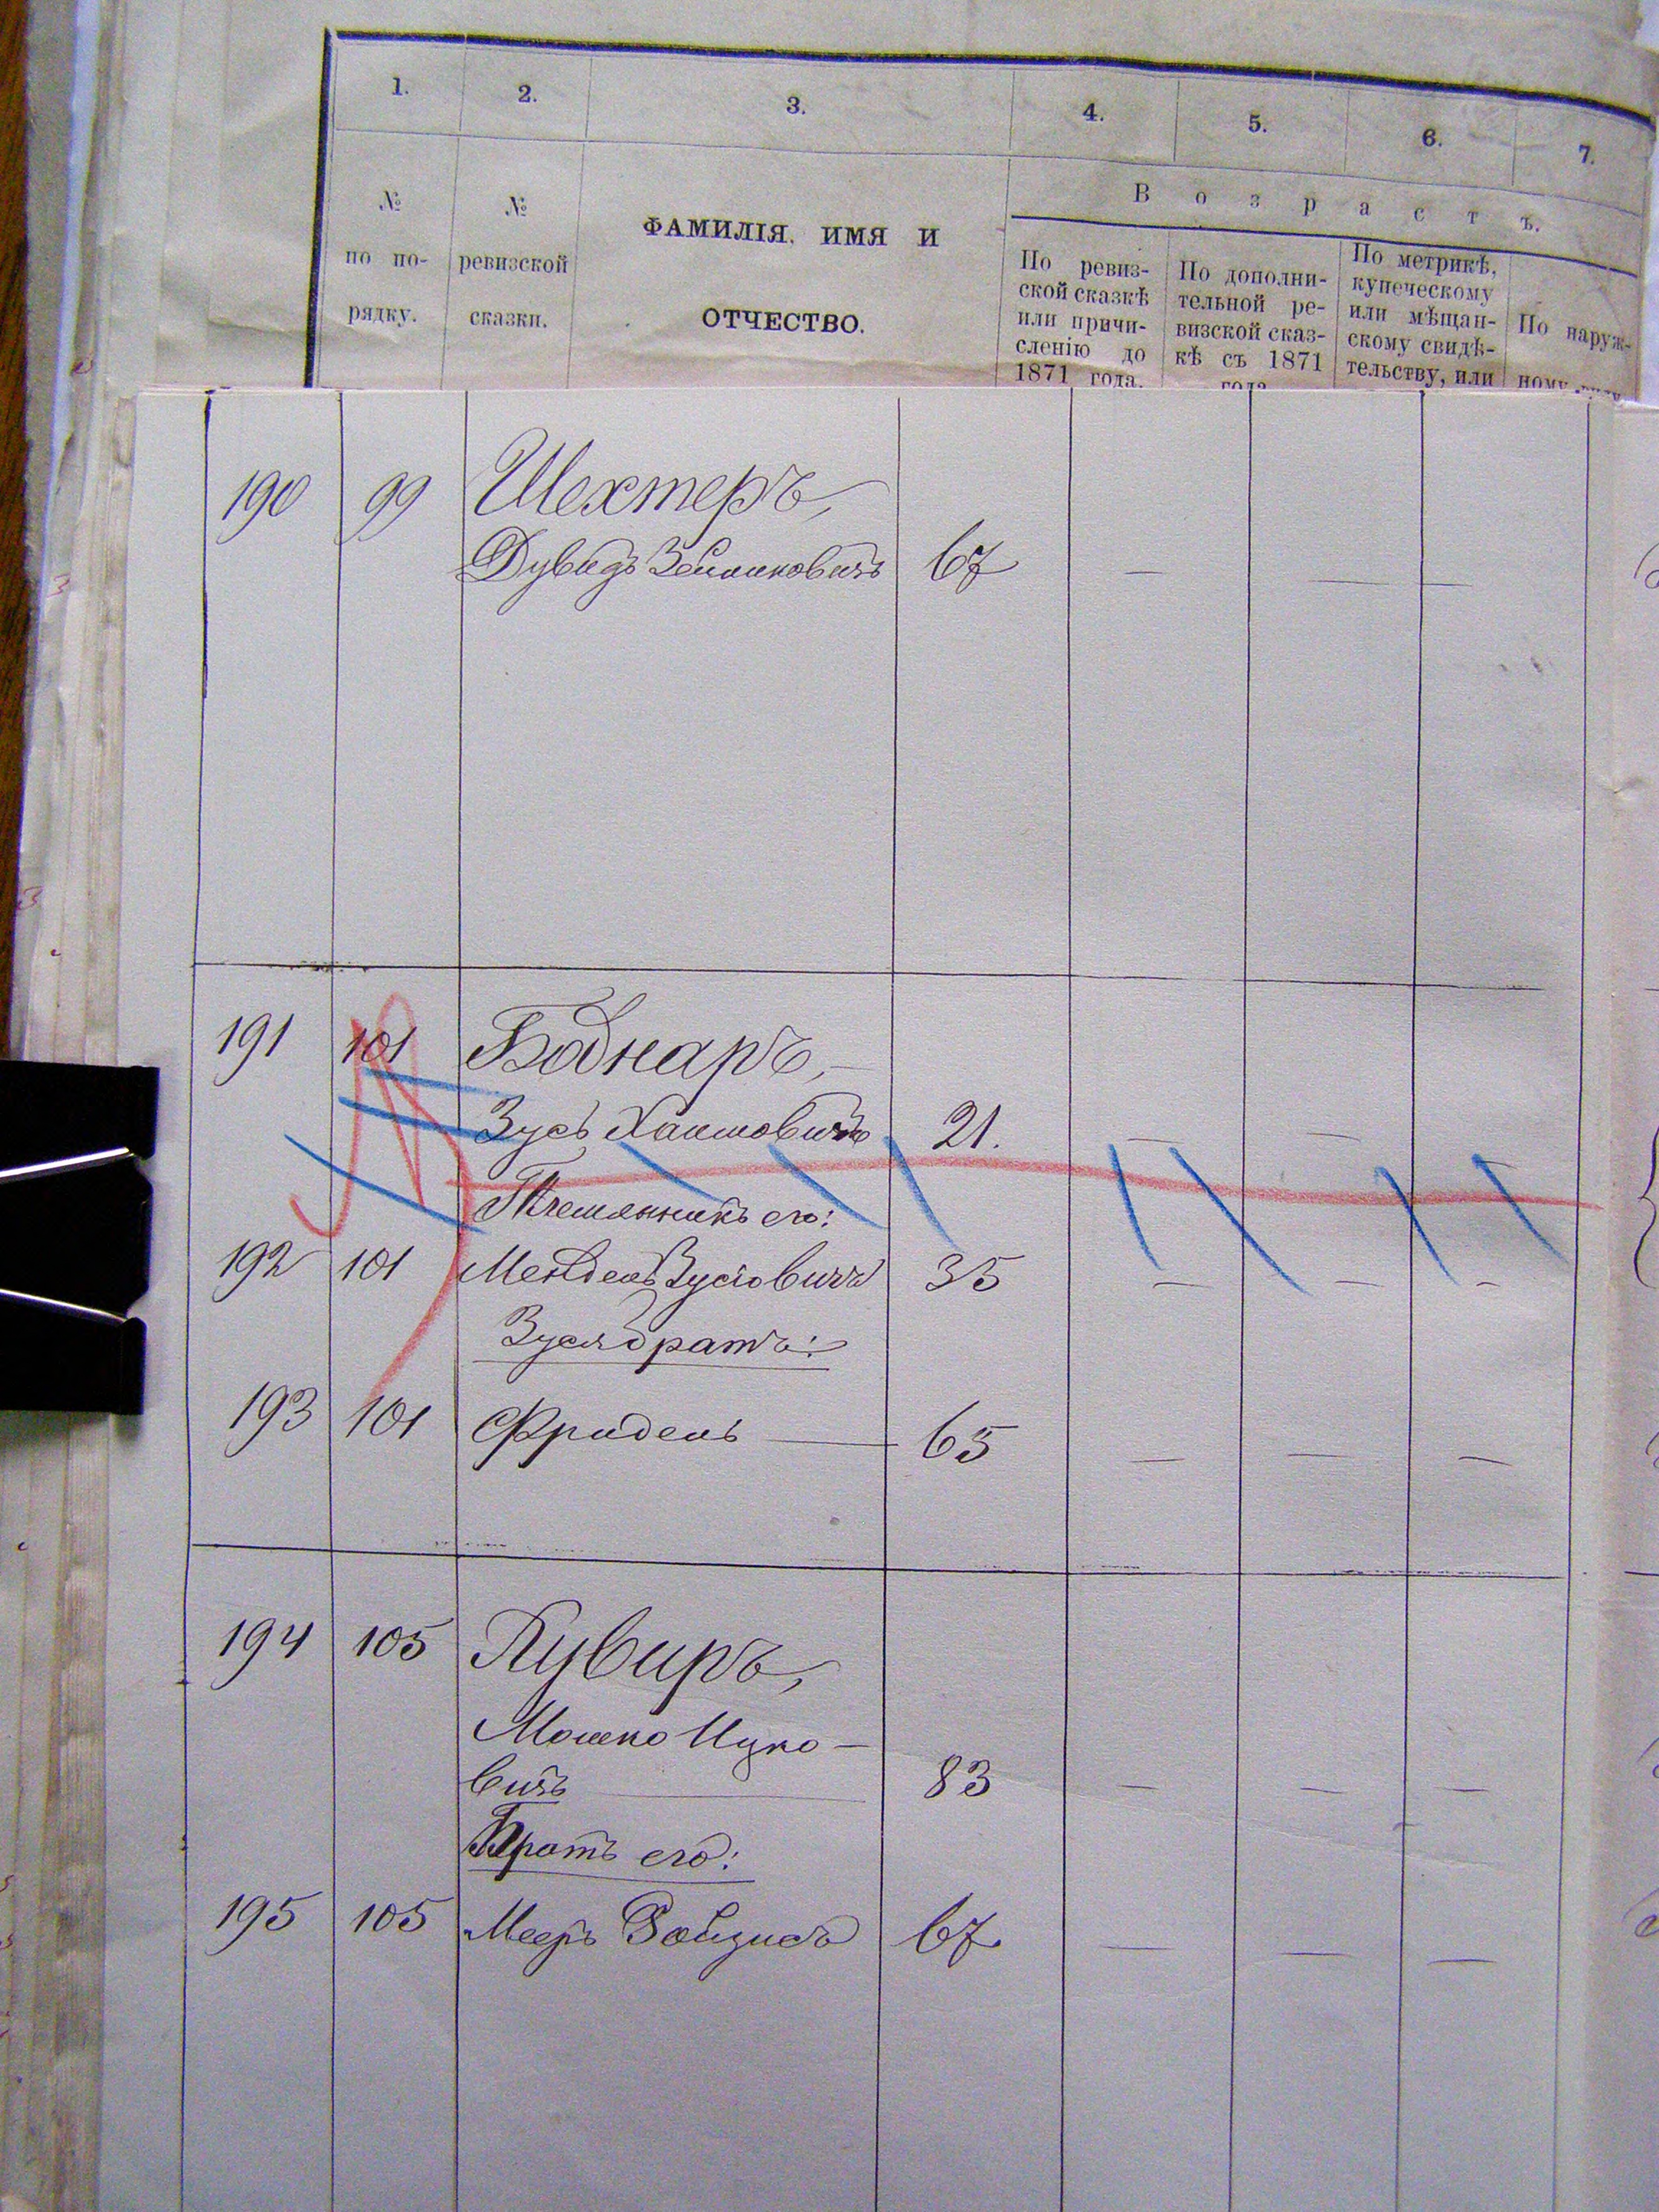 1. 2. 3. 4. 5. 6. 7.
В о з р а с т ъ.
№ по по- рядку.
№ ревизской сказки.
ФАМИЛІЯ, ИМЯ И
ОТЧЕСТВО.
По ревиз-
ской сказкѣ
или причи-
сленію до
1871 года.
По дополни-
тельной ре-
визской сказ-
кѣ съ 1871
года
По метрикѣ,
купеческому
или мѣщан-
скому свидѣ-
тельству, или
По наруж-
ному виду
190 99 Шехтеръ,
Дувидъ Зейликовичъ 67 — — —
191 101 Боднаръ, —
Зусь Хаимовичъ 21. — —
Племянникъ его:
192 101 Мендель Зусіовичъ 35 — — —
Зуся братъ:
193 101 Фридель — 65 — — —
194 105 Кувиръ,
Мошко Ицко-
вичъ 83 — — —
Братъ его:
195 105 Мееръ Ройзисъ 67 — — —